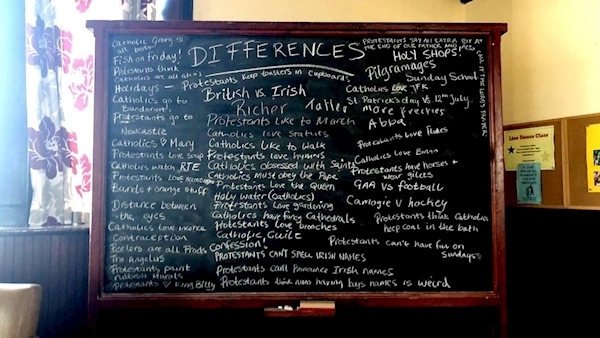 DIFFERENCES
Catholic Gravy is
all Bisto
Fish on friday!
Protestants think
Catholics are all alco's
Holidays -
Catholics go to
Bundoran!
Protestants go to
Newcastle
Catholics ♡ Mary
Protestants love soup
Catholics watch RTE
Protestants love marching
Bands + orange stuff
Distance between
the eyes
Catholics love incense
Contraception
Peelers are all Prods
The Angelus
Protestants paint
Murals
Protestants ♡ King Billy
Protestants keep toasters in Cupboards
British vs. Irish
Richer
Taller
Protestants Like to March
Catholics love statues
Catholics like to walk
Protestants love hymns
Catholics obsessed with Saints
Catholics must obey the Pope
Protestants Love the Queen
Holy water (Catholics)
Protestants Love gardening
Catholics have fancy Cathedrals
Protestants Love brooches
Catholic Guilt
Confession!
PROTESTANTS CAN'T SPELL IRISH NAMES
Protestants can't Pronounce Irish names
Protestants think nuns having boys names is weird
PROTESTANTS SAY AN EXTRA BIT AT
THE END OF OUR FATHER AND
CALL IT THE LORD'S PRAYER!
HOLY SHOPS!
Pilgramages
Sunday School
Catholics Love JFK
St. Patrick's day VS 12th July
more freckles
Abba
Protestants Love Flutes
Catholics Love Bingo
Protestants have horses +
wear gilets
GAA VS football
Camogie V hockey
Protestants think Catholics
keep coal in the bath
Protestants can't have fun on
Sundays
Line Dance Class